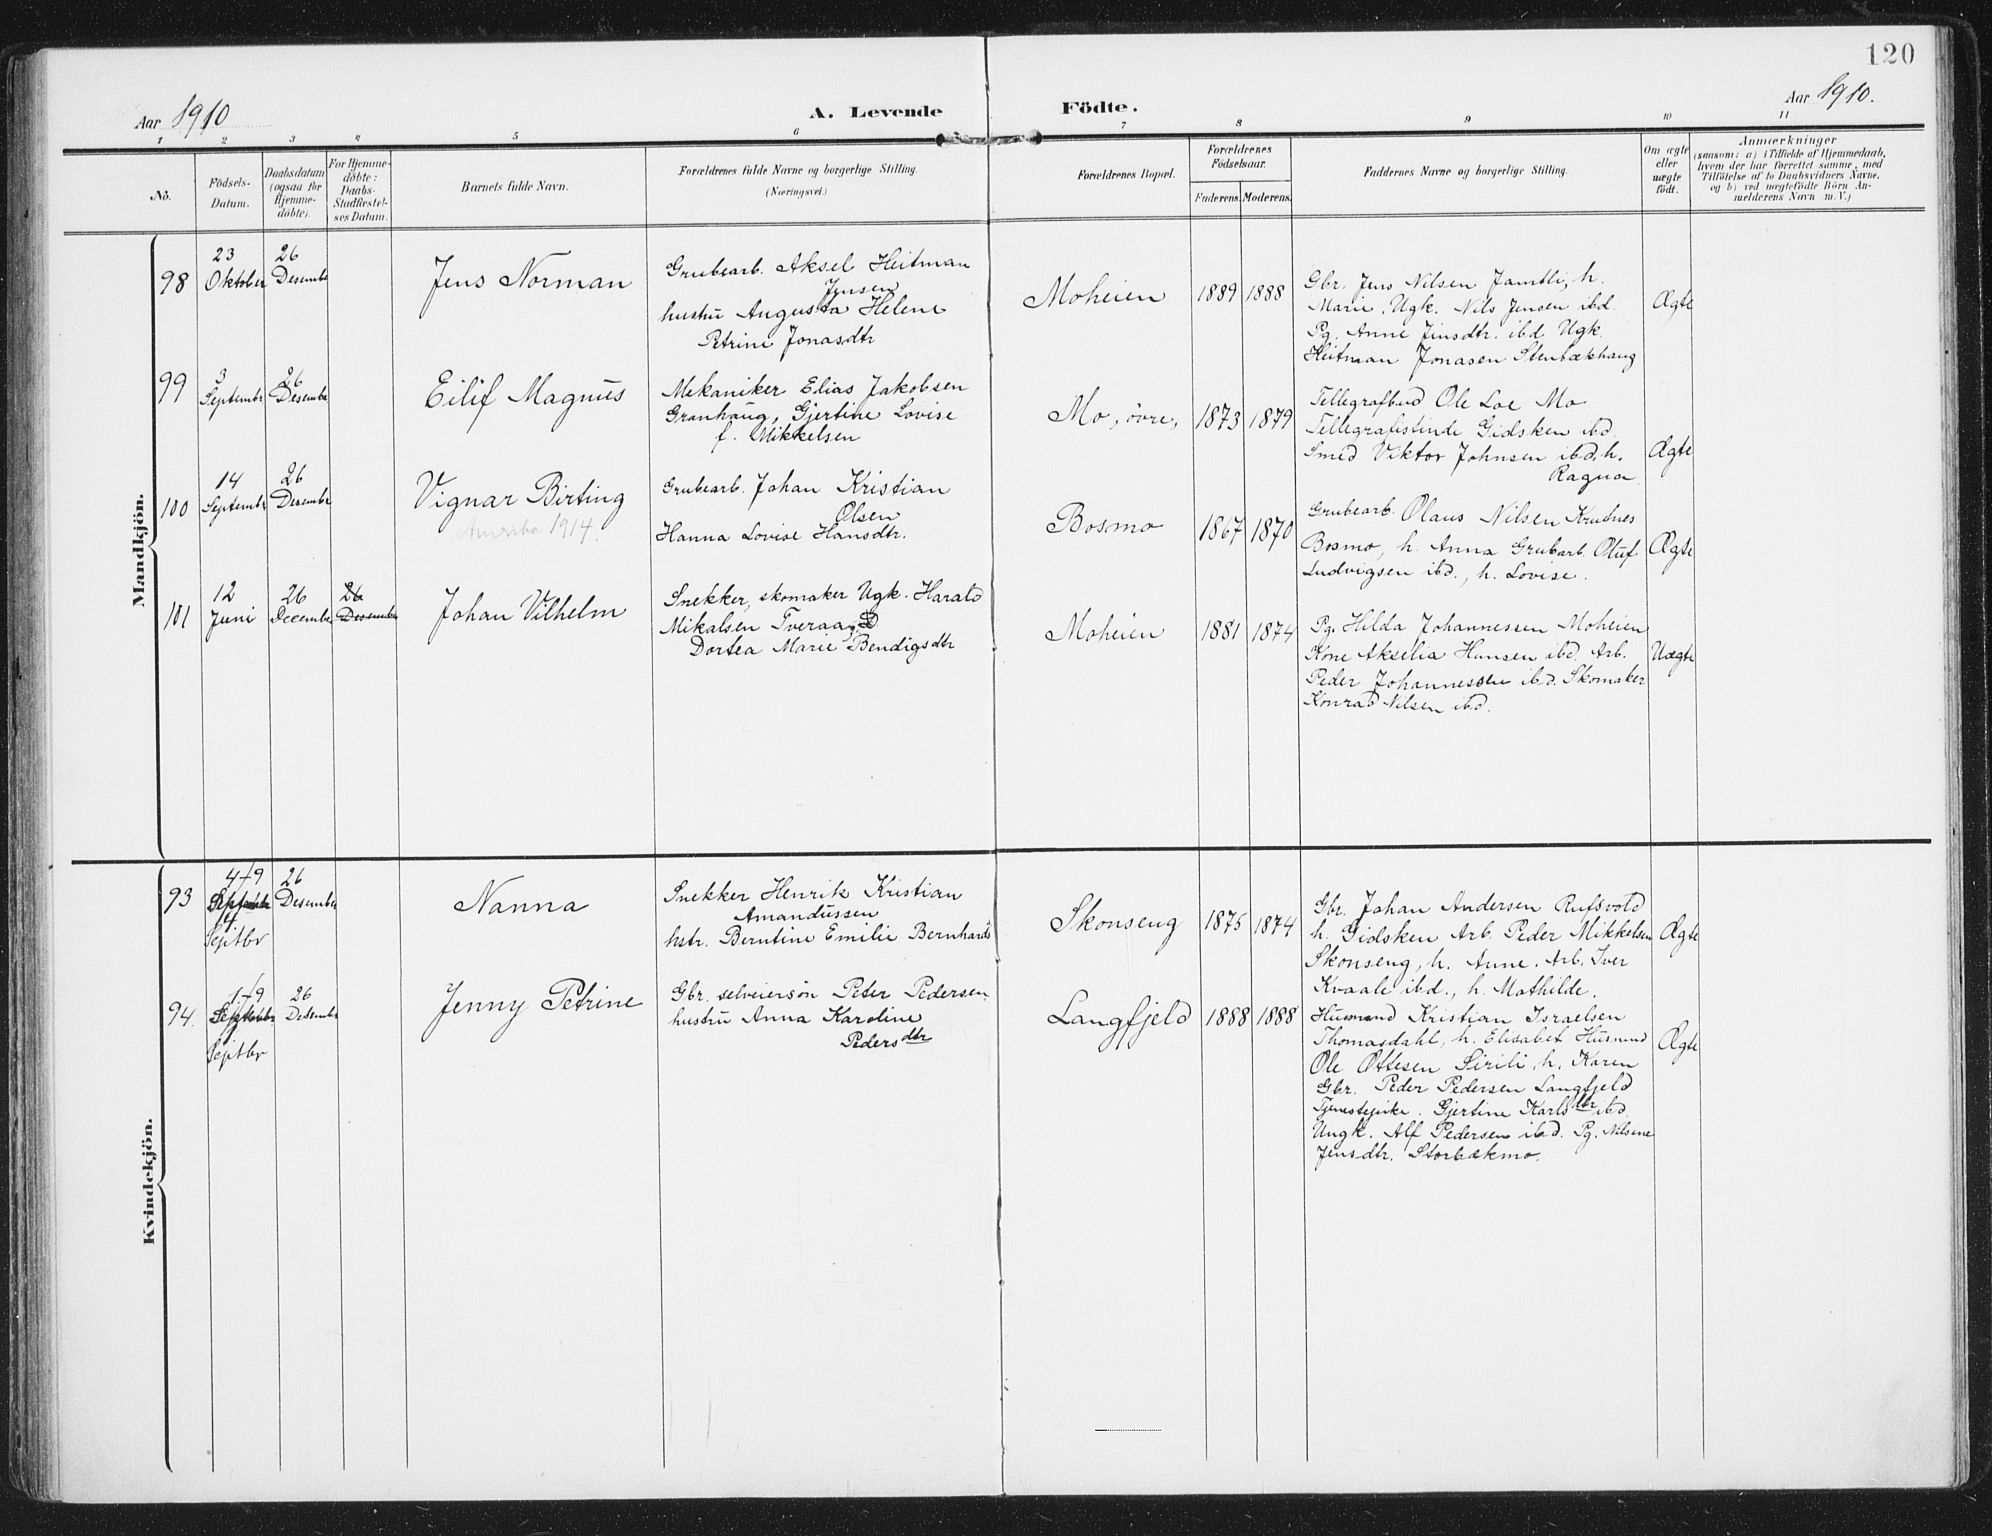 120
Aar 1910
A. Levende Födte.
Aar 1910.
1 2 3 4 5 6 7 8 9 10 11
No.
Födsels-
Datum.
Daabsdatum
(ogsaa for
Hjemme-
döbte).
For Hjemme-
döbte:
Daabs-
Stadfæstel-
ses Datum.
Barnets fulde Navn.
Forældrenes fulde Navne og borgerlige Stilling.
(Næringsvei.)
Forældrenes Bopæl.
Forældrenes
Födselsaar.
Faderens. Moderens.
Faddernes Navne og borgerlige Stilling.
Om ægte
eller
uægte
födt.
Anmærkninger
(saasom: a) i Tilfælde af Hjemmedaab,
hvem der har forrettet samme, med
Tilföielse af to Daabsvidners Navne,
og b) ved uægtefödte Börn An-
melderens Navn m. V.)
Mandkjön.
98
23
Oktober
26
Desembr
Jens Norman
Grubearb. Aksel Heitman
Jensen
hustru Augusta Helene
Petrine Jonasdtr
Moheien
1889 1888
Gbr. Jens Nilsen Jamtli, h.
Marie, Ugk. Nils Jensen ibd.
Pg. Anne Jensdtr. ibd Ugk.
Heitman Jonasen Stenbækhaug
Ægte
99
3
Septembr
26
Desembr
Eilif Magnus
Mekaniker Elias Jakobsen
Granhaug, Gjertine Lovise
f. Mikkelsen
Mo, övre,
1873 1879
Tellegrafbud Ole Loe Mo
Tellegrafistinde Gidsken ibd.
Smed Viktor Johnsen ibd. h.
Ragna
Ægte
100
14
Septembr
26
Desembr
Vignar Birting
Amerika 1914.
Grubearb. Johan Kristian
Olsen
Hanna Lovise Hansdtr.
Bosmo
1867 1870
Grubearb. Olaus Nilsen Krudnes
Bosmo, h. Anna Grubarb. Oluf
Ludvigsen ibd., h. Lovise.
Ægte
101
12
Juni
26
Decembr
26
Desembr
Johan Vilhelm
Snekker, skomaker Ugk. Harald
Mikalsen Tveraa, D
Dortea Marie Bendigsdtr
Moheien
1881 1874
Pg. Hilda Johannessen Moheien
Kone Akselia Hansen ibd. Arb.
Peder Johannessen ibd. Skomaker
Konrad Nilsen ibd.
Uægte
Kvindekjön.
93
4/9
Septbr
26
Desembr
Nanna
Snekker Henrik Kristian
Amandussen
hstr. Berntine Emilie Bernhards
Skonseng
1875 1874
Gbr. Johan Andersen Rufsvold
h. Gidsken Arb. Peder Mikkelsen
Skonseng, h. Anne. Arb. Iver
Kvaale ibd., h. Mathilde.
Ægte
94.
1/9
Septbr
26
Desembr
Jenny Petrine
Gbr. selveiersön Peter Pedersen
hustru Anna Karoline
Pedersdtr
Langfjeld
1888 1888
Husmand Kristian Israelsen
Thomasdahl, h. Elisabet Husmnd
Ole Ottesen Sirili, h. Karen
Gbr. Peder Pedersen Langfjeld
Tjenestepike. Gjertine Karlsdtr ibd
Ungk. Alf Pedersen ibd. Pg. Nilsine
Jensdtr. Storbækmo.
Ægte